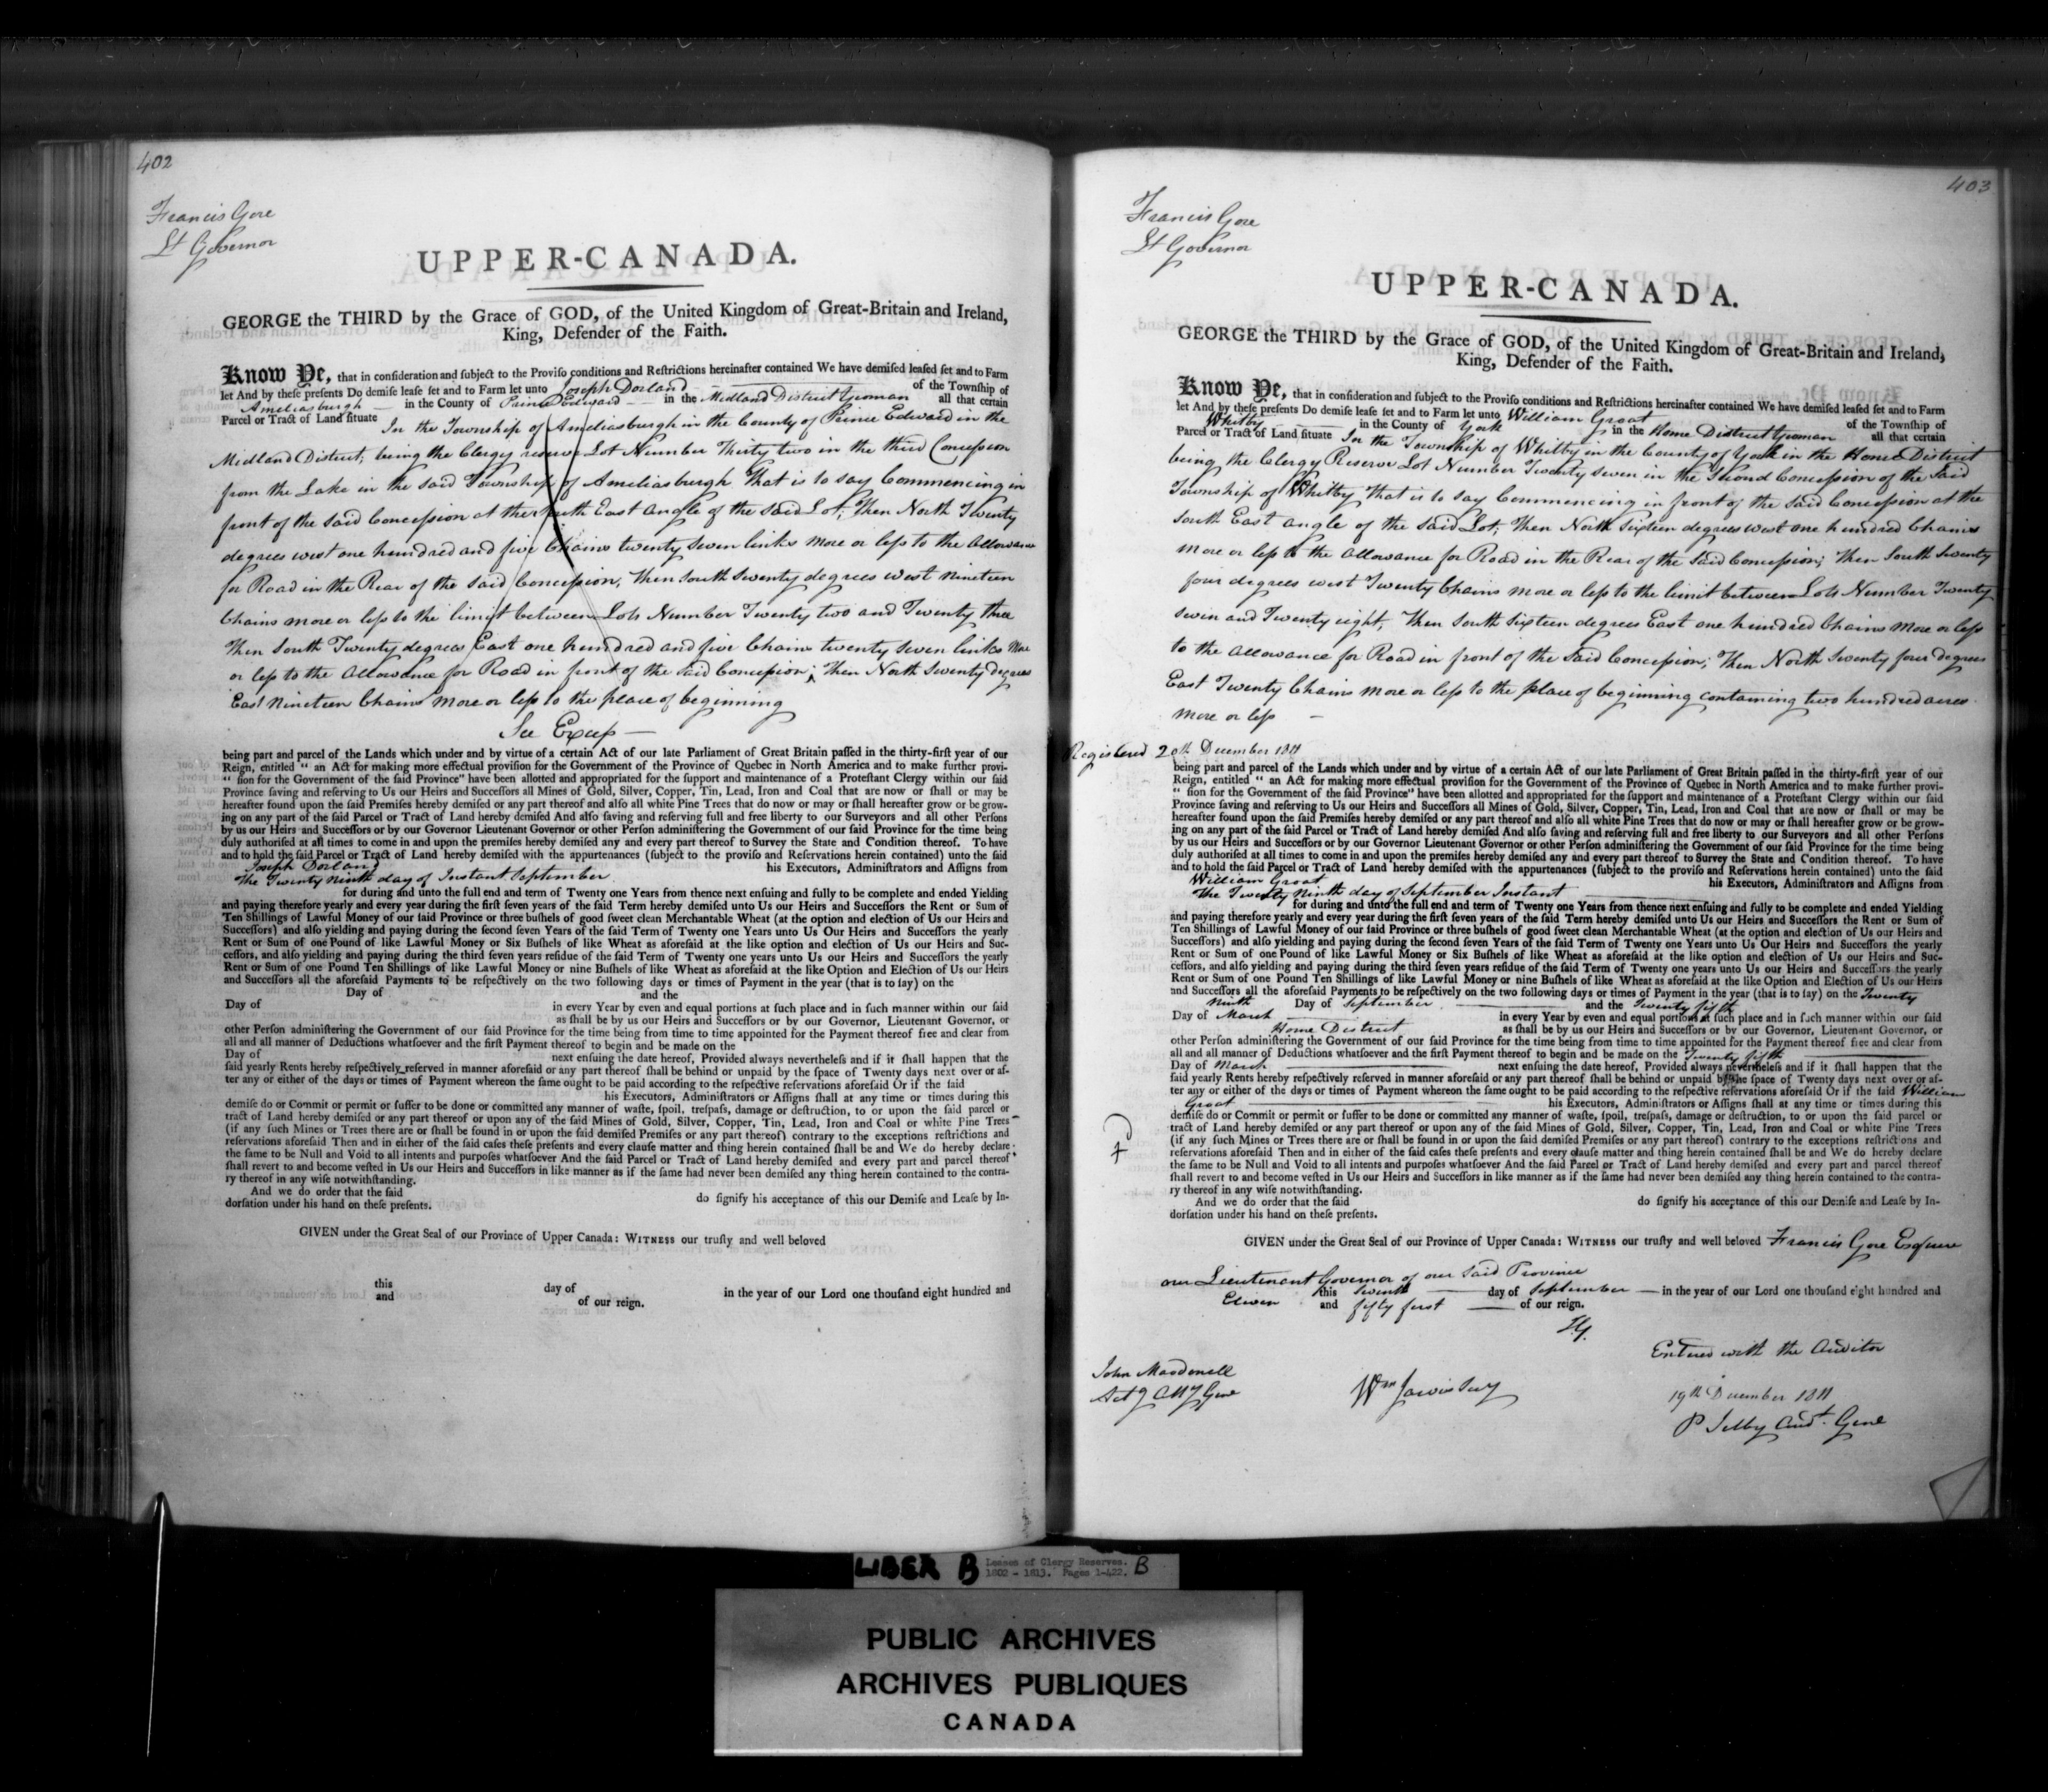 402
Francis Gore
Lt Governor
UPPER-CANADA.
GEORGE the THIRD by the Grace of GOD, of the United Kingdom of Great-Britain and Ireland,
King, Defender of the Faith.
Know Ye, that in conſideration and ſubject to the Proviſo conditions and Reſtrictions hereinafter contained We have demiſed leaſed ſet and to Farm
let And by theſe preſents Do demiſe leaſe ſet and to Farm let unto Joseph Dorland of the Townſhip of
Ameliasburgh in the County of Prince Edward in the Midland District Yeoman all that certain
Parcel or Tract of Land ſituate In the Township of Ameliasburgh in the County of Prince Edward in the
Midland District, being the Clergy reserve Lot Number Thirty two in the third Concession
from the Lake in the said Township of Ameliasburgh That is to say Commencing in
front of the said Concession at the South East angle of the said Lot; Then North Twenty
degrees west one hundred and five Chains twenty seven links more or less to the Allowance
for Road in the Rear of the said Concession, Then South Seventy degrees west nineteen
Chains more or less to the limit between Lots Number Twenty two and Twenty three
Then South Twenty degrees East one hundred and five Chains twenty seven links More
or less to the Allowance for Road in front of the said Concession; Then North Seventy degrees
East Nineteen Chains more or less to the place of beginning
See
being part and parcel of the Lands which under and by virtue of a certain Act of our late Parliament of Great Britain paſſed in the thirty-firſt year of our
Reign, entitled “ an Act for making more effectual proviſion for the Government of the Province of Quebec in North America and to make further provi-
“ ſion for the Government of the ſaid Province” have been allotted and appropriated for the ſupport and maintenance of a Proteſtant Clergy within our ſaid
Province ſaving and reſerving to Us our Heirs and Succeſſors all Mines of Gold, Silver, Copper, Tin, Lead, Iron and Coal that are now or ſhall or may be
hereafter found upon the ſaid Premiſes hereby demiſed or any part thereof and alſo all white Pine Trees that do now or may or ſhall hereafter grow or be grow-
ing on any part of the ſaid Parcel or Tract of Land hereby demiſed And alſo ſaving and reſerving full and free liberty to our Surveyors and all other Perſons
by us our Heirs and Succeſſors or by our Governor Lieutenant Governor or other Perſon adminiſtering the Government of our ſaid Province for the time being
duly authoriſed at all times to come in and upon the premiſes hereby demiſed any and every part thereof to Survey the State and Condition thereof. To have
and to hold the ſaid Parcel or Tract of Land hereby demiſed with the appurtenances (ſubject to the proviſo and Reſervations herein contained) unto the ſaid
Joseph Dorland his Executors, Adminiſtrators and Aſſigns from
The Twenty Ninth day of Instant September
for during and unto the full end and term of Twenty one Years from thence next enſuing and fully to be complete and ended Yielding
and paying therefore yearly and every year during the firſt ſeven years of the ſaid Term hereby demiſed unto Us our Heirs and Succeſſors the Rent or Sum of
Ten Shillings of Lawful Money of our ſaid Province or three buſhels of good ſweet clean Merchantable Wheat (at the option and election of Us our Heirs and
Succeſſors) and alſo yielding and paying during the ſecond ſeven Years of the ſaid Term of Twenty one Years unto Us Our Heirs and Succeſſors the yearly
Rent or Sum of one Pound of like Lawful Money or Six Buſhels of like Wheat as aforeſaid at the like option and election of Us our Heirs and Suc-
ceſſors, and alſo yielding and paying during the third ſeven years reſidue of the ſaid Term of Twenty one years unto Us our Heirs and Succeſſors the yearly
Rent or Sum of one Pound Ten Shillings of like Lawful Money or nine Buſhels of like Wheat as aforeſaid at the like Option and Election of Us our Heirs
and Succeſſors all the aforeſaid Payments to be reſpectively on the two following days or times of Payment in the year (that is to ſay) on the
Day of and the
Day of in every Year by even and equal portions at ſuch place and in ſuch manner within our ſaid
as ſhall be by us our Heirs and Succeſſors or by our Governor, Lieutenant Governor, or
other Perſon adminiſtering the Government of our ſaid Province for the time being from time to time appointed for the Payment thereof free and clear from
all and all manner of Deductions whatſoever and the firſt Payment thereof to begin and be made on the
Day of next enſuing the date hereof, Provided always nevertheleſs and if it ſhall happen that the
ſaid yearly Rents hereby reſpectively reſerved in manner aforeſaid or any part thereof ſhall be behind or unpaid by the ſpace of Twenty days next over or af-
ter any or either of the days or times of Payment whereon the ſame ought to be paid according to the reſpective reſervations aforeſaid Or if the ſaid
his Executors, Adminiſtrators or Aſſigns ſhall at any time or times during this
demiſe do or Commit or permit or ſuffer to be done or committed any manner of waſte, ſpoil, treſpaſs, damage or deſtruction, to or upon the ſaid parcel or
tract of Land hereby demiſed or any part thereof or upon any of the ſaid Mines of Gold, Silver, Copper, Tin, Lead, Iron and Coal or white Pine Trees
(if any ſuch Mines or Trees there are or ſhall be found in or upon the ſaid demiſed Premiſes or any part thereof) contrary to the exceptions reſtrictions and
reſervations aforeſaid Then and in either of the ſaid caſes theſe preſents and every clauſe matter and thing herein contained ſhall be and We do hereby declare
the ſame to be Null and Void to all intents and purpoſes whatſoever And the ſaid Parcel or Tract of Land hereby demiſed and every part and parcel thereof
ſhall revert to and become veſted in Us our Heirs and Succeſſors in like manner as if the ſame had never been demiſed any thing herein contained to the contra-
ry thereof in any wiſe notwithſtanding.
And we do order that the ſaid do ſignify his acceptance of this our Demiſe and Leaſe by In-
dorſation under his hand on theſe preſents.
GIVEN under the Great Seal of our Province of Upper Canada: WITNESS our truſty and well beloved
this day of in the year of our Lord one thouſand eight hundred and
and of our reign.
403
Francis Gore
Lt Governor
UPPER-CANADA.
GEORGE the THIRD by the Grace of GOD, of the United Kingdom of Great-Britain and Ireland,
King, Defender of the Faith.
Know Ye, that in conſideration and ſubject to the Proviſo conditions and Reſtrictions hereinafter contained We have demiſed leaſed ſet and to Farm
let And by theſe preſents Do demiſe leaſe ſet and to Farm let unto William Groat of the Townſhip of
Whitby in the County of York in the Home District Yeoman all that certain
Parcel or Tract of Land ſituate In the Township of Whitby in the County of York in the Home District
being the Clergy Reserve Lot Number Twenty seven in the Second Concession of the Said
Township of Whitby That is to say Commencing in front of the said Concession at the
South East angle of the said Lot, Then North Sixteen degrees west one hundred Chains
more or less to the Allowance for Road in the Rear of the said Concession; Then South Seventy
four degrees west Twenty Chains more or less to the limit between Lots Number Twenty
seven and Twenty eight, Then South Sixteen degrees East one hundred Chains More or less
to the Allowance for Road in front of the said Concession; Then North Seventy four degrees
East Twenty Chains more or less to the place of beginning containing two hundred acres
more or less
Registered 20th December 1811
being part and parcel of the Lands which under and by virtue of a certain Act of our late Parliament of Great Britain paſſed in the thirty-firſt year of our
Reign, entitled “ an Act for making more effectual proviſion for the Government of the Province of Quebec in North America and to make further provi-
“ ſion for the Government of the ſaid Province” have been allotted and appropriated for the ſupport and maintenance of a Proteſtant Clergy within our ſaid
Province ſaving and reſerving to Us our Heirs and Succeſſors all Mines of Gold, Silver, Copper, Tin, Lead, Iron and Coal that are now or ſhall or may be
hereafter found upon the ſaid Premiſes hereby demiſed or any part thereof and alſo all white Pine Trees that do now or may or ſhall hereafter grow or be grow-
ing on any part of the ſaid Parcel or Tract of Land hereby demiſed And alſo ſaving and reſerving full and free liberty to our Surveyors and all other Perſons
by us our Heirs and Succeſſors or by our Governor Lieutenant Governor or other Perſon adminiſtering the Government of our ſaid Province for the time being
duly authoriſed at all times to come in and upon the premiſes hereby demiſed any and every part thereof to Survey the State and Condition thereof. To have
and to hold the ſaid Parcel or Tract of Land hereby demiſed with the appurtenances (ſubject to the proviſo and Reſervations herein contained) unto the ſaid
William Groat his Executors, Adminiſtrators and Aſſigns from
The Twenty Ninth day of September Instant
for during and unto the full end and term of Twenty one Years from thence next enſuing and fully to be complete and ended Yielding
and paying therefore yearly and every year during the firſt ſeven years of the ſaid Term hereby demiſed unto Us our Heirs and Succeſſors the Rent or Sum of
Ten Shillings of Lawful Money of our ſaid Province or three buſhels of good ſweet clean Merchantable Wheat (at the option and election of Us our Heirs and
Succeſſors) and alſo yielding and paying during the ſecond ſeven Years of the ſaid Term of Twenty one Years unto Us Our Heirs and Succeſſors the yearly
Rent or Sum of one Pound of like Lawful Money or Six Buſhels of like Wheat as aforeſaid at the like option and election of Us our Heirs and Suc-
ceſſors, and alſo yielding and paying during the third ſeven years reſidue of the ſaid Term of Twenty one years unto Us our Heirs and Succeſſors the yearly
Rent or Sum of one Pound Ten Shillings of like Lawful Money or nine Buſhels of like Wheat as aforeſaid at the like Option and Election of Us our Heirs
and Succeſſors all the aforeſaid Payments to be reſpectively on the two following days or times of Payment in the year (that is to ſay) on the Twenty
Ninth Day of September and the Twenty fifth
Day of March in every Year by even and equal portions at ſuch place and in ſuch manner within our ſaid
Home District as ſhall be by us our Heirs and Succeſſors or by our Governor, Lieutenant Governor, or
other Perſon adminiſtering the Government of our ſaid Province for the time being from time to time appointed for the Payment thereof free and clear from
all and all manner of Deductions whatſoever and the firſt Payment thereof to begin and be made on the Twenty fifth
Day of March next enſuing the date hereof, Provided always nevertheleſs and if it ſhall happen that the
ſaid yearly Rents hereby reſpectively reſerved in manner aforeſaid or any part thereof ſhall be behind or unpaid by the ſpace of Twenty days next over or af-
ter any or either of the days or times of Payment whereon the ſame ought to be paid according to the reſpective reſervations aforeſaid Or if the ſaid William
Groat his Executors, Adminiſtrators or Aſſigns ſhall at any time or times during this
demiſe do or Commit or permit or ſuffer to be done or committed any manner of waſte, ſpoil, treſpaſs, damage or deſtruction, to or upon the ſaid parcel or
tract of Land hereby demiſed or any part thereof or upon any of the ſaid Mines of Gold, Silver, Copper, Tin, Lead, Iron and Coal or white Pine Trees
(if any ſuch Mines or Trees there are or ſhall be found in or upon the ſaid demiſed Premiſes or any part thereof) contrary to the exceptions reſtrictions and
reſervations aforeſaid Then and in either of the ſaid caſes theſe preſents and every clauſe matter and thing herein contained ſhall be and We do hereby declare
the ſame to be Null and Void to all intents and purpoſes whatſoever And the ſaid Parcel or Tract of Land hereby demiſed and every part and parcel thereof
ſhall revert to and become veſted in Us our Heirs and Succeſſors in like manner as if the ſame had never been demiſed any thing herein contained to the contra-
ry thereof in any wiſe notwithſtanding.
And we do order that the ſaid do ſignify his acceptance of this our Demiſe and Leaſe by In-
dorſation under his hand on theſe preſents.
GIVEN under the Great Seal of our Province of Upper Canada: WITNESS our truſty and well beloved Francis Gore Esquire
our Lieutenant Governor of our said Province
this Seventh day of September in the year of our Lord one thouſand eight hundred and
Eleven and fifty first of our reign.
F.G.
Entered with the Auditor
John Macdonell
Actg Atty Gene
Wm Jarvis Secy
19th December 1811
P Selby Audt. Gene
LIBER B Leases of Clergy Reserves. B
1802 - 1813. Pages 1-422.
PUBLIC ARCHIVES
ARCHIVES PUBLIQUES
CANADA